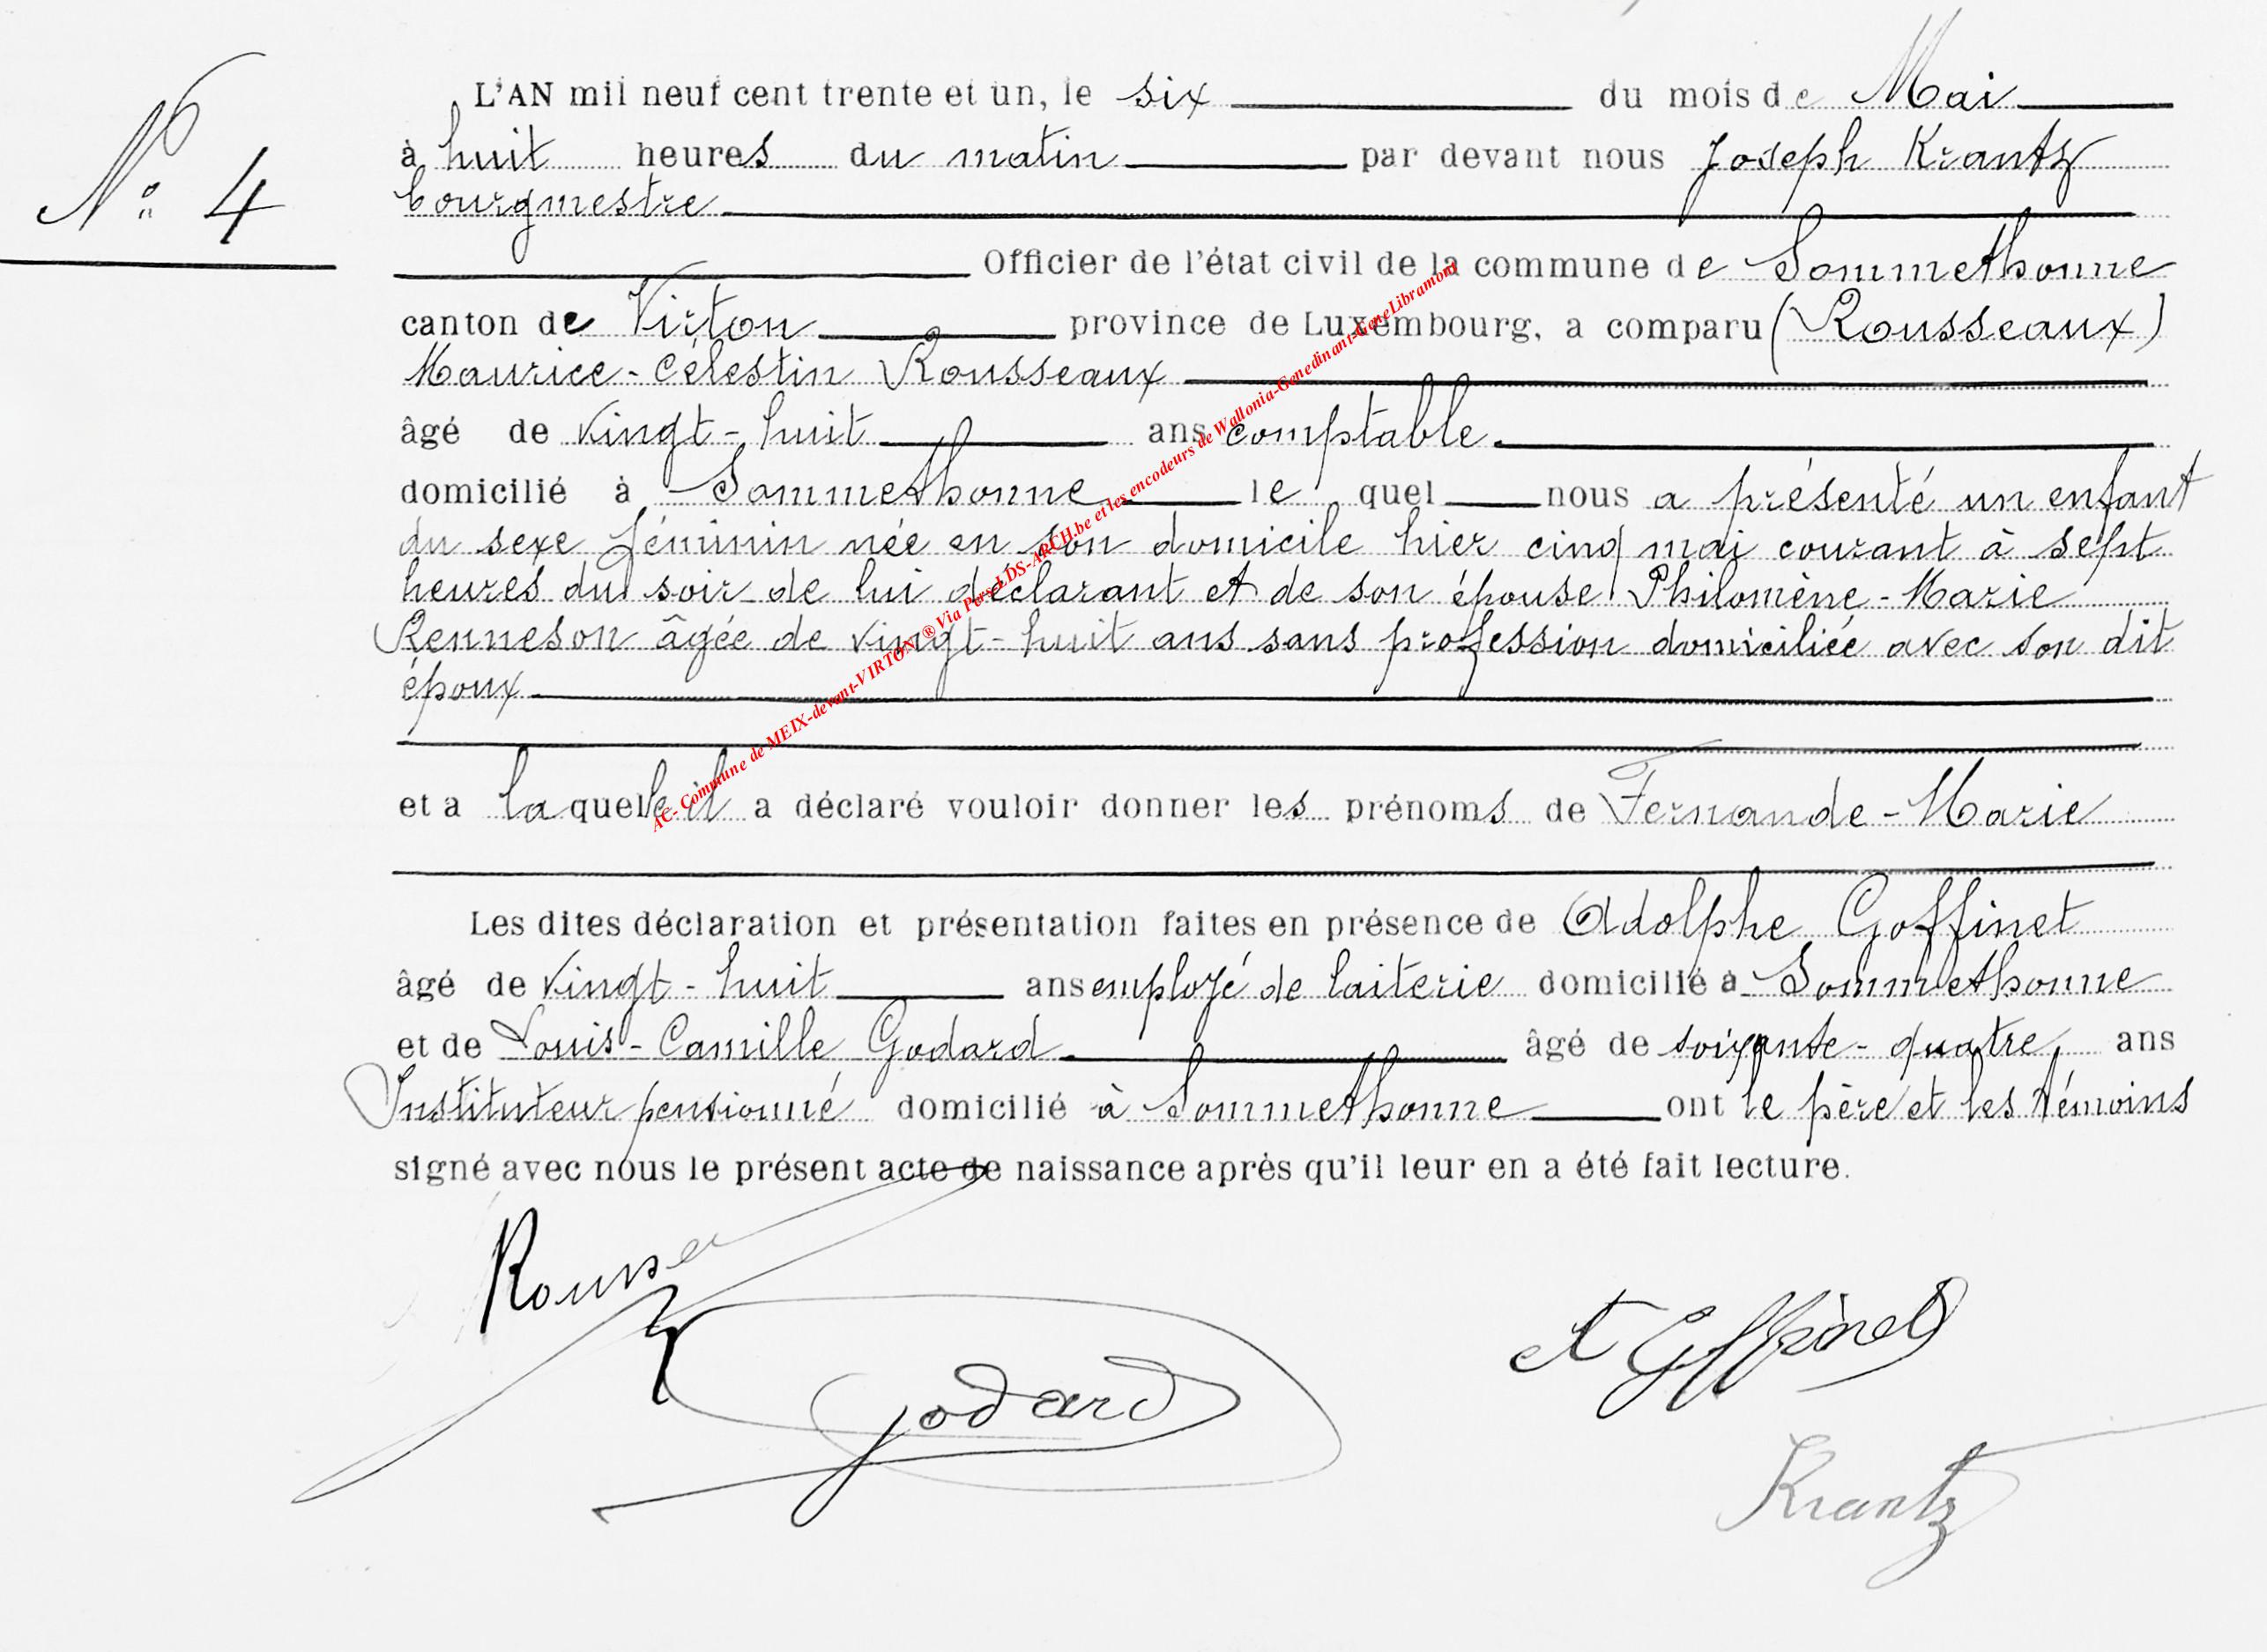 N° 4
L'AN mil neuf cent trente et un, le six du mois de Mai
à huit heures du matin par devant nous Joseph Krantz
bourgmestre
Officier de l'état civil de la commune de Sommethonne
canton de Virton province de Luxembourg, a comparu (Rousseaux)
Maurice-Célestin Rousseaux
âgé de vingt-huit ans comptable
domicilié à Sommethonne le quel nous a présenté un enfant
du sexe féminin née en son domicile hier cinq mai courant à sept
heures du soir de lui déclarant et de son épouse Philomène-Marie
Renneson âgée de vingt-huit ans sans profession domiciliée avec son dit
époux
et a laquelle il a déclaré vouloir donner les prénoms de Fernande-Marie
Les dites déclaration et présentation faites en présence de Adolphe Goffinet
âgé de vingt-huit ans employé de laiterie domicilié à Sommethonne
et de Louis-Camille Godard âgé de soixante-quatre ans
Instituteur pensionné domicilié à Sommethonne ont le père et les témoins
signé avec nous le présent acte de naissance après qu'il leur en a été fait lecture.
A Goffinet
Godard
Krantz
AC- Commune de MEIX-devant-VIRTON ® Via Pers-LDS-ARCH.be et les encodeurs de Wallonia-Genedinant-GeneLibramont